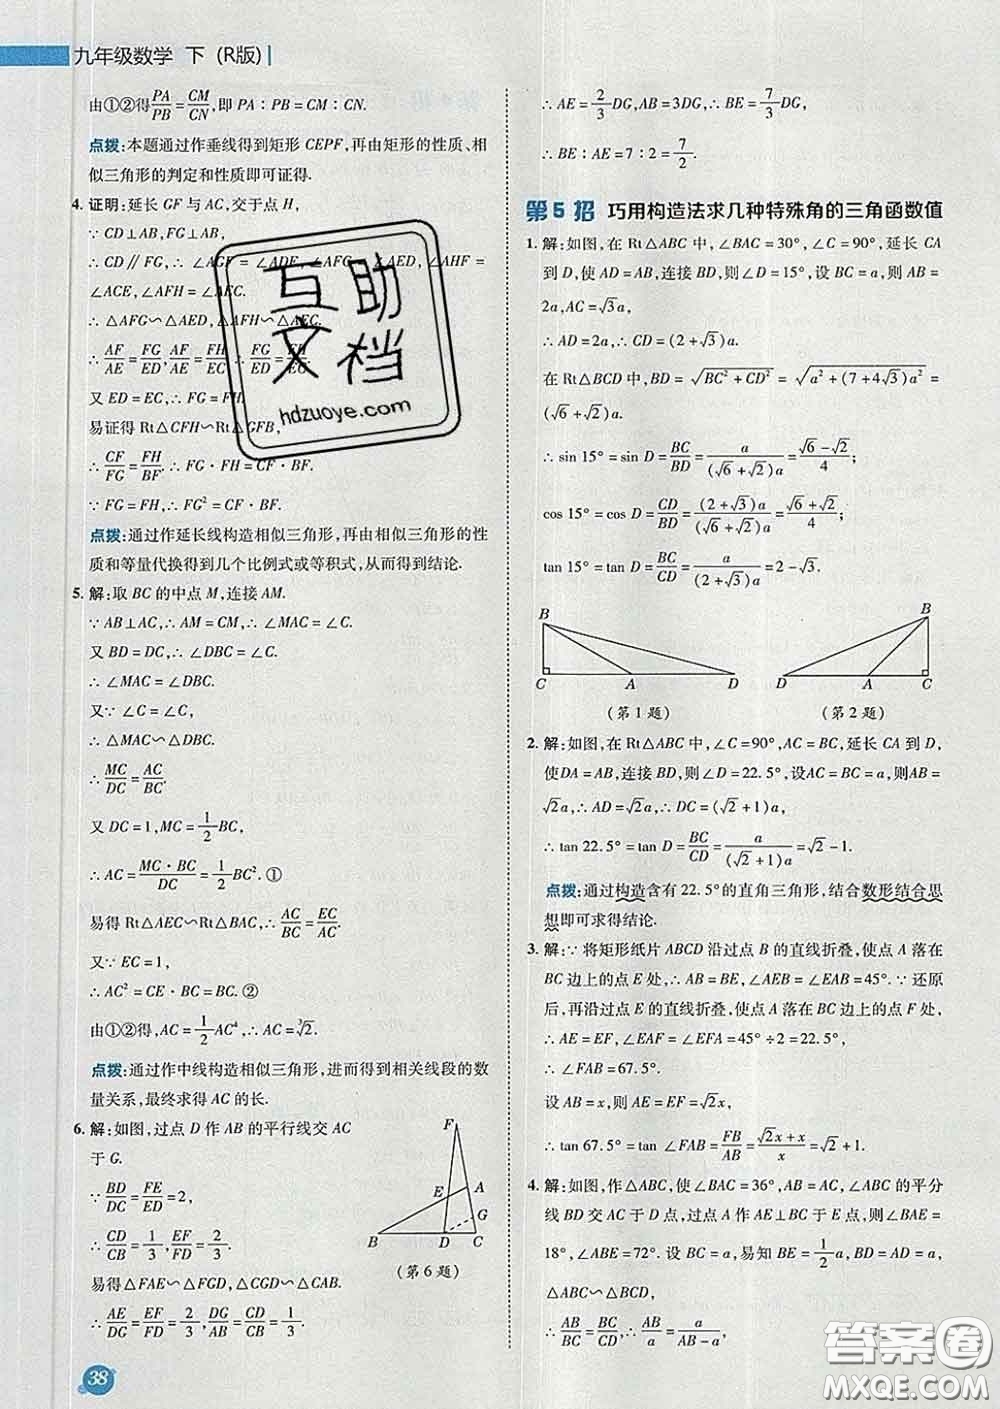 九年级数学 下 (R版)
由①②得PA/PB=CM/CN,即 PA∶PB=CM∶CN.
点拨:本题通过作垂线得到矩形 CEPF,再由矩形的性质、相
似三角形的判定和性质即可证得.
4. 证明:延长 GF 与 AC,交于点 H,
∵ CD⊥AB,FG⊥AB,
∴ CD∥FG,∴ ∠AGF=∠ADE,∠AFG=∠AED,∠AHF=
∠ACE,∠AFH=∠AEC.
∴ △AFG∽△AED,△AFH∽△AEC.
∴ AF/AE=FG/ED,AF/AE=FH/EC.∴ FG/ED=FH/EC.
又 ED=EC,∴ FG=FH.
易证得 Rt△CFH∽Rt△GFB,
∴ CF/FG=FH/BF.∴ FG·FH=CF·BF.
∵ FG=FH,∴ FG²=CF·BF.
点拨:通过作延长线构造相似三角形,再由相似三角形的性
质和等量代换得到几个比例式或等积式,从而得到结论.
5. 解:取 BC 的中点 M,连接 AM.
∵ AB⊥AC,∴ AM=CM,∴ ∠MAC=∠C.
又 BD=DC,∴ ∠DBC=∠C.
∴ ∠MAC=∠DBC.
又∵ ∠C=∠C,
∴ △MAC∽△DBC.
∴ MC/DC=AC/BC.
又 DC=1,MC=1/2BC,
∴ AC=MC·BC/DC=1/2BC².①
易得 Rt△AEC∽Rt△BAC,∴ AC/BC=EC/AC.
又∵ EC=1,
∴ AC²=CE·BC=BC.②
由①②得,AC=1/2AC⁴,∴ AC=∛2.
点拨:通过作中线构造相似三角形,进而得到相关线段的数
量关系,最终求得 AC 的长.
6. 解:如图,过点 D 作 AB 的平行线交 AC
于 G.
∵ BD/DC=FE/ED=2,
∴ CD/CB=1/3,EF/FD=2/3.
易得 △FAE∽△FGD,△CGD∽△CAB,
∴ AE/DG=EF/FD=2/3,DG/AB=CD/CB=1/3,
F
E
A
G
B
D
C
(第 6 题)
∴ AE=2/3DG,AB=3DG,∴ BE=7/3DG,
∴ BE∶AE=7∶2=7/2.
第 5 招 巧用构造法求几种特殊角的三角函数值
1. 解:如图,在 Rt△ABC 中,∠BAC=30°,∠C=90°,延长 CA
到 D,使 AD=AB,连接 BD,则∠D=15°,设 BC=a,则 AB=
2a,AC=√3a.
∴ AD=2a,∴ CD=(2+√3)a.
在 Rt△BCD 中,BD=√(BC²+CD²)=√(a²+(7+4√3)a²)=
(√6+√2)a.
∴ sin 15°=sin D=BC/BD=a/((√6+√2)a)=(√6-√2)/4;
cos 15°=cos D=CD/BD=(2+√3)a/((√6+√2)a)=(√6+√2)/4;
tan 15°=tan D=BC/CD=a/((2+√3)a)=2-√3.
B
C
A
D
(第 1 题)
B
D
A
C
(第 2 题)
2. 解:如图,在 Rt△ABC 中,∠C=90°,AC=BC,延长 CA 到 D,
使DA=AB,连接 BD,则∠D=22.5°,设AC=BC=a,则AB=
√2a,∴ AD=√2a,∴ DC=(√2+1)a.
∴ tan 22.5°=tan D=BC/CD=a/((√2+1)a)=√2-1.
点拨:通过构造含有 22.5°的直角三角形,结合数形结合思
想即可求得结论.
3. 解:∵ 将矩形纸片 ABCD 沿过点 B 的直线折叠,使点 A 落在
BC 边上的点 E 处,∴ AB=BE,∠AEB=∠EAB=45°.∵ 还原
后,再沿过点 E 的直线折叠,使点 A 落在 BC 边上的点 F 处,
∴ AE=EF,∠FAE=∠EFA=45°÷2=22.5°.
∴ ∠FAB=67.5°.
设 AB=x,则 AE=EF=√2x,
∴ tan 67.5°=tan ∠FAB=FB/AB=(√2x+x)/x=√2+1.
4. 解:如图,作△ABC,使∠BAC=36°,AB=AC,∠ABC 的平分
线 BD 交 AC 于 D 点,过点 A 作 AE⊥BC 于 E 点,则∠BAE=
18°,∠ABC=72°. 设 BC=a,易知 BE=1/2a,BD=AD=a,
△ABC∽△BDC.
∴ AB/BC=BC/CD,即AB/a=a/(AB-a),
38
互助
文档
hdzuoye.com
答案圈
MXQE.COM